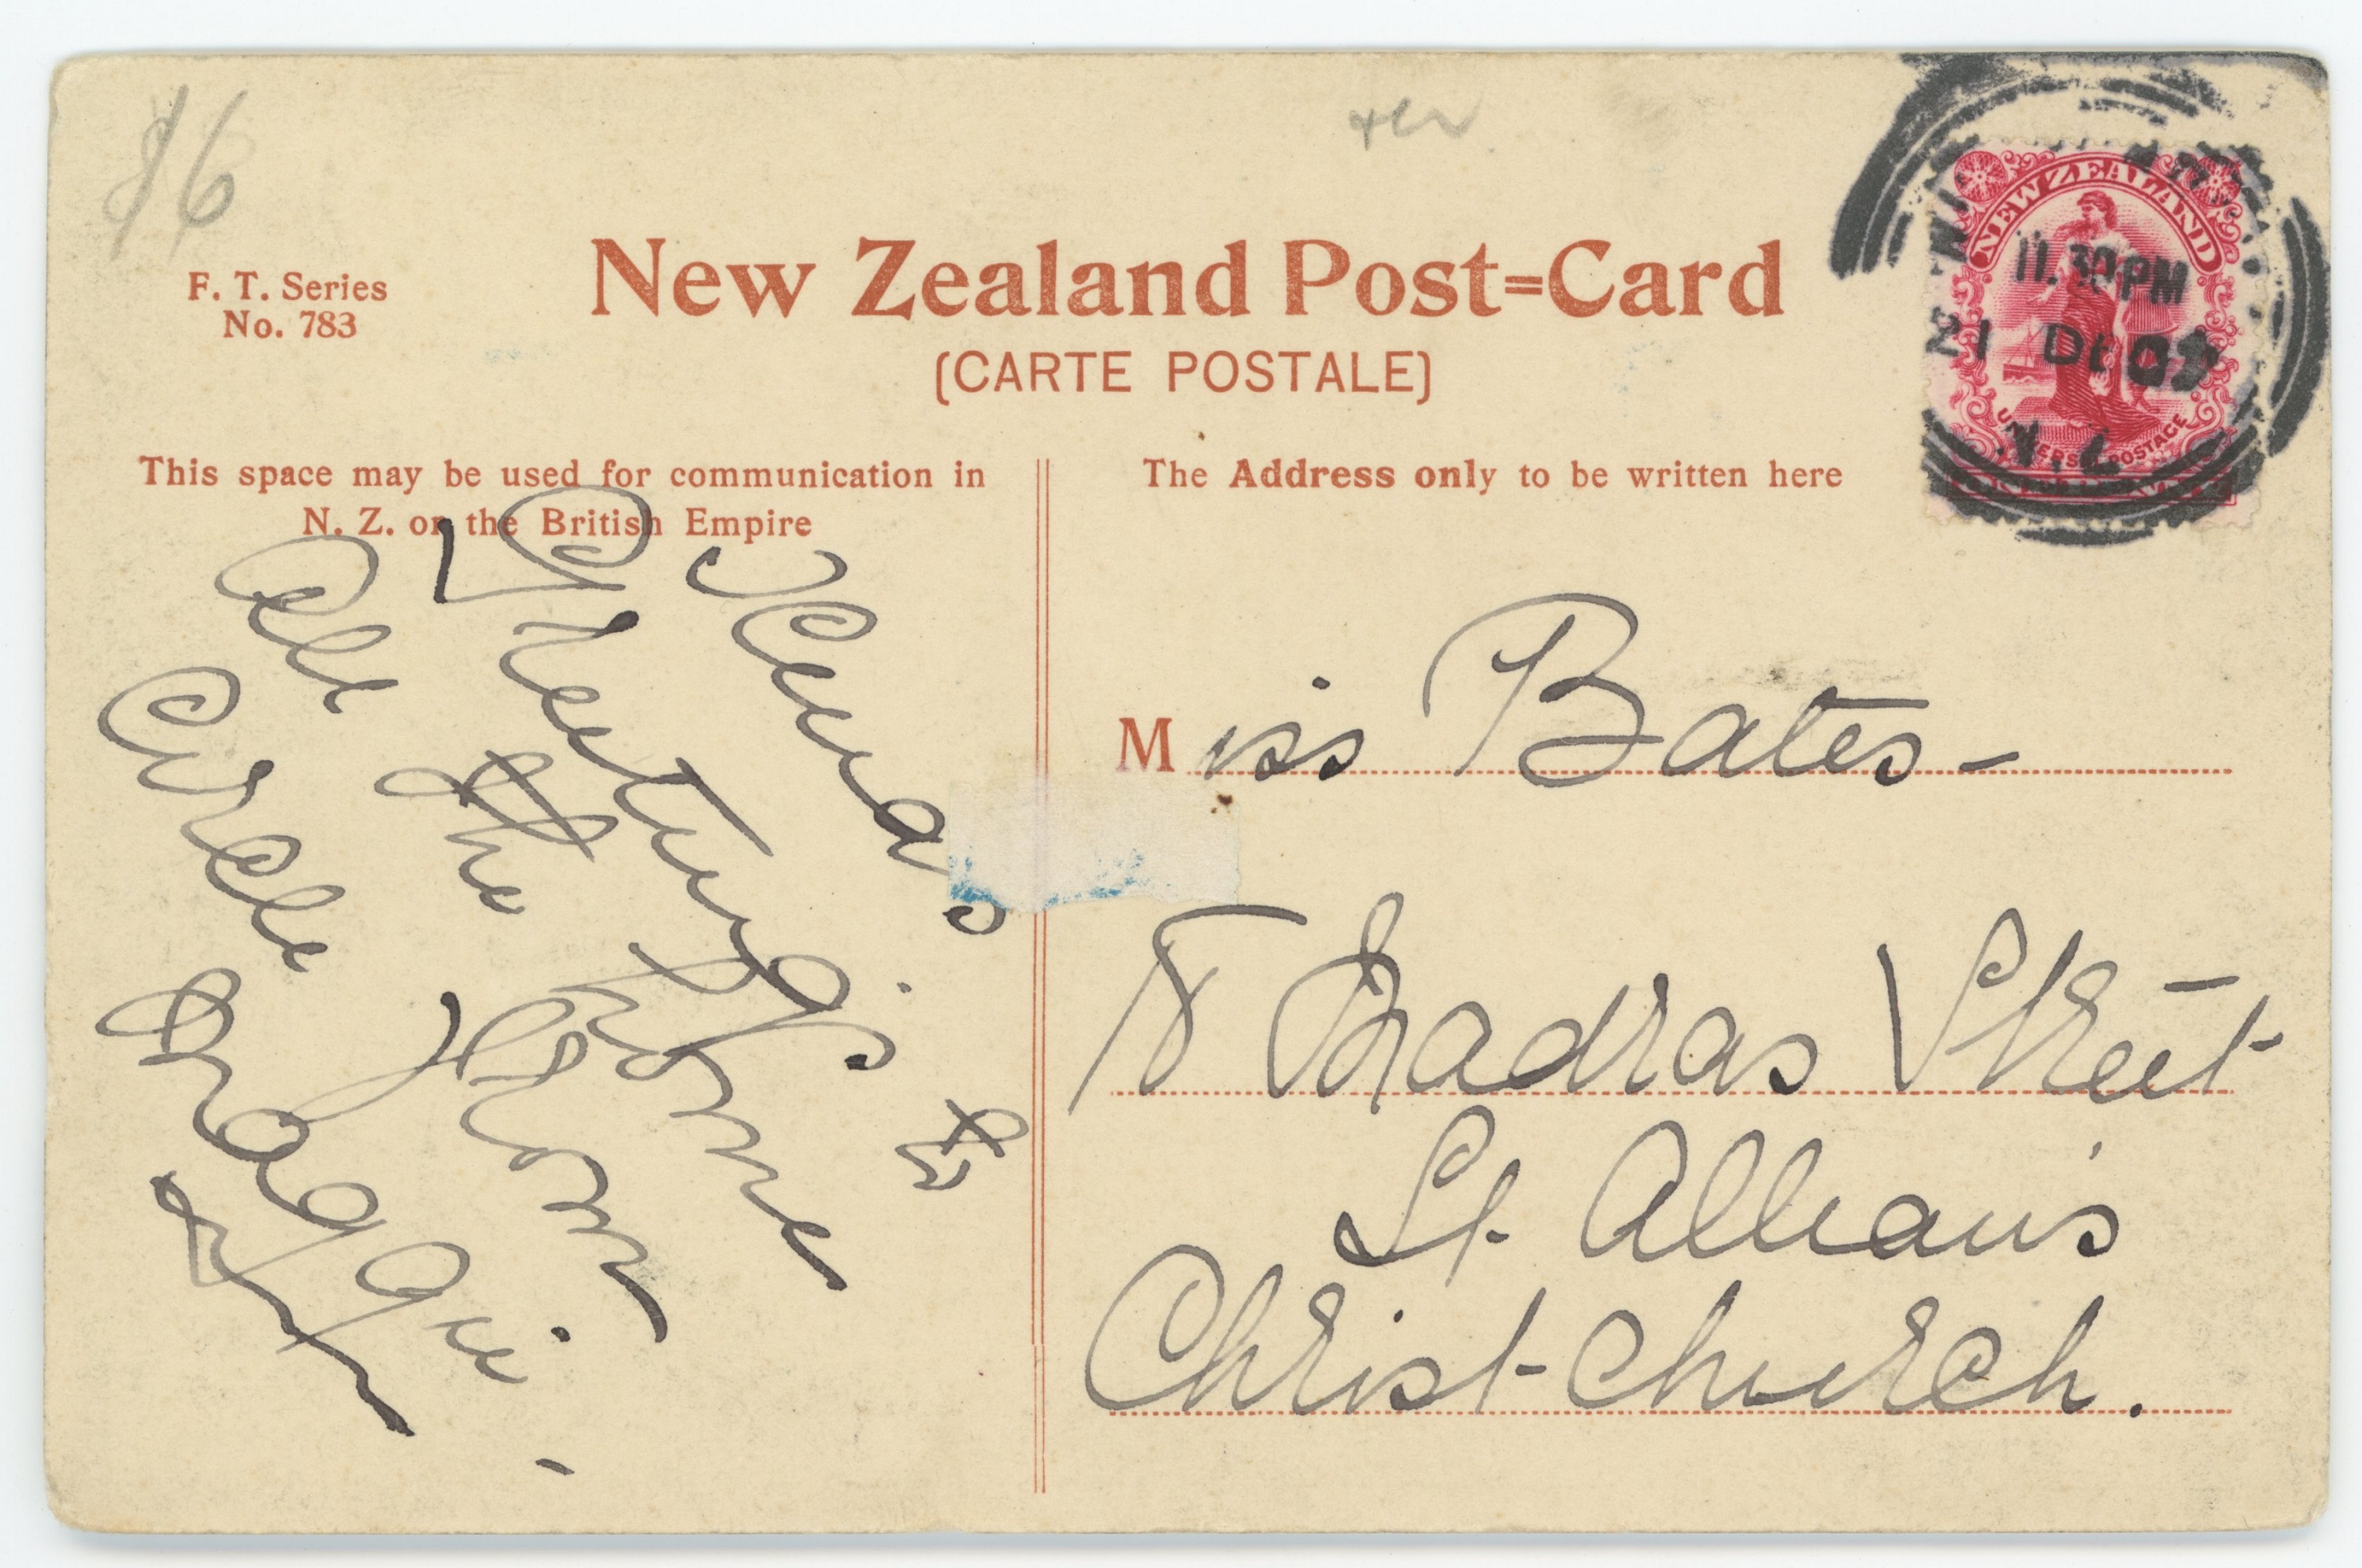 $6
F. T. Series
No. 783
New Zealand Post=Card
(CARTE POSTALE)
NEW ZEALAND
11.30 PM
21 DE 07
N.Z.
UNIVERSAL POSTAGE
This space may be used for communication in
N. Z. or the British Empire
The Address only to be written here
Xmas
Greetings to
all the home
Circle from
Maggie.
Miss Bates-
Madras Street
St Albans
Christchurch.